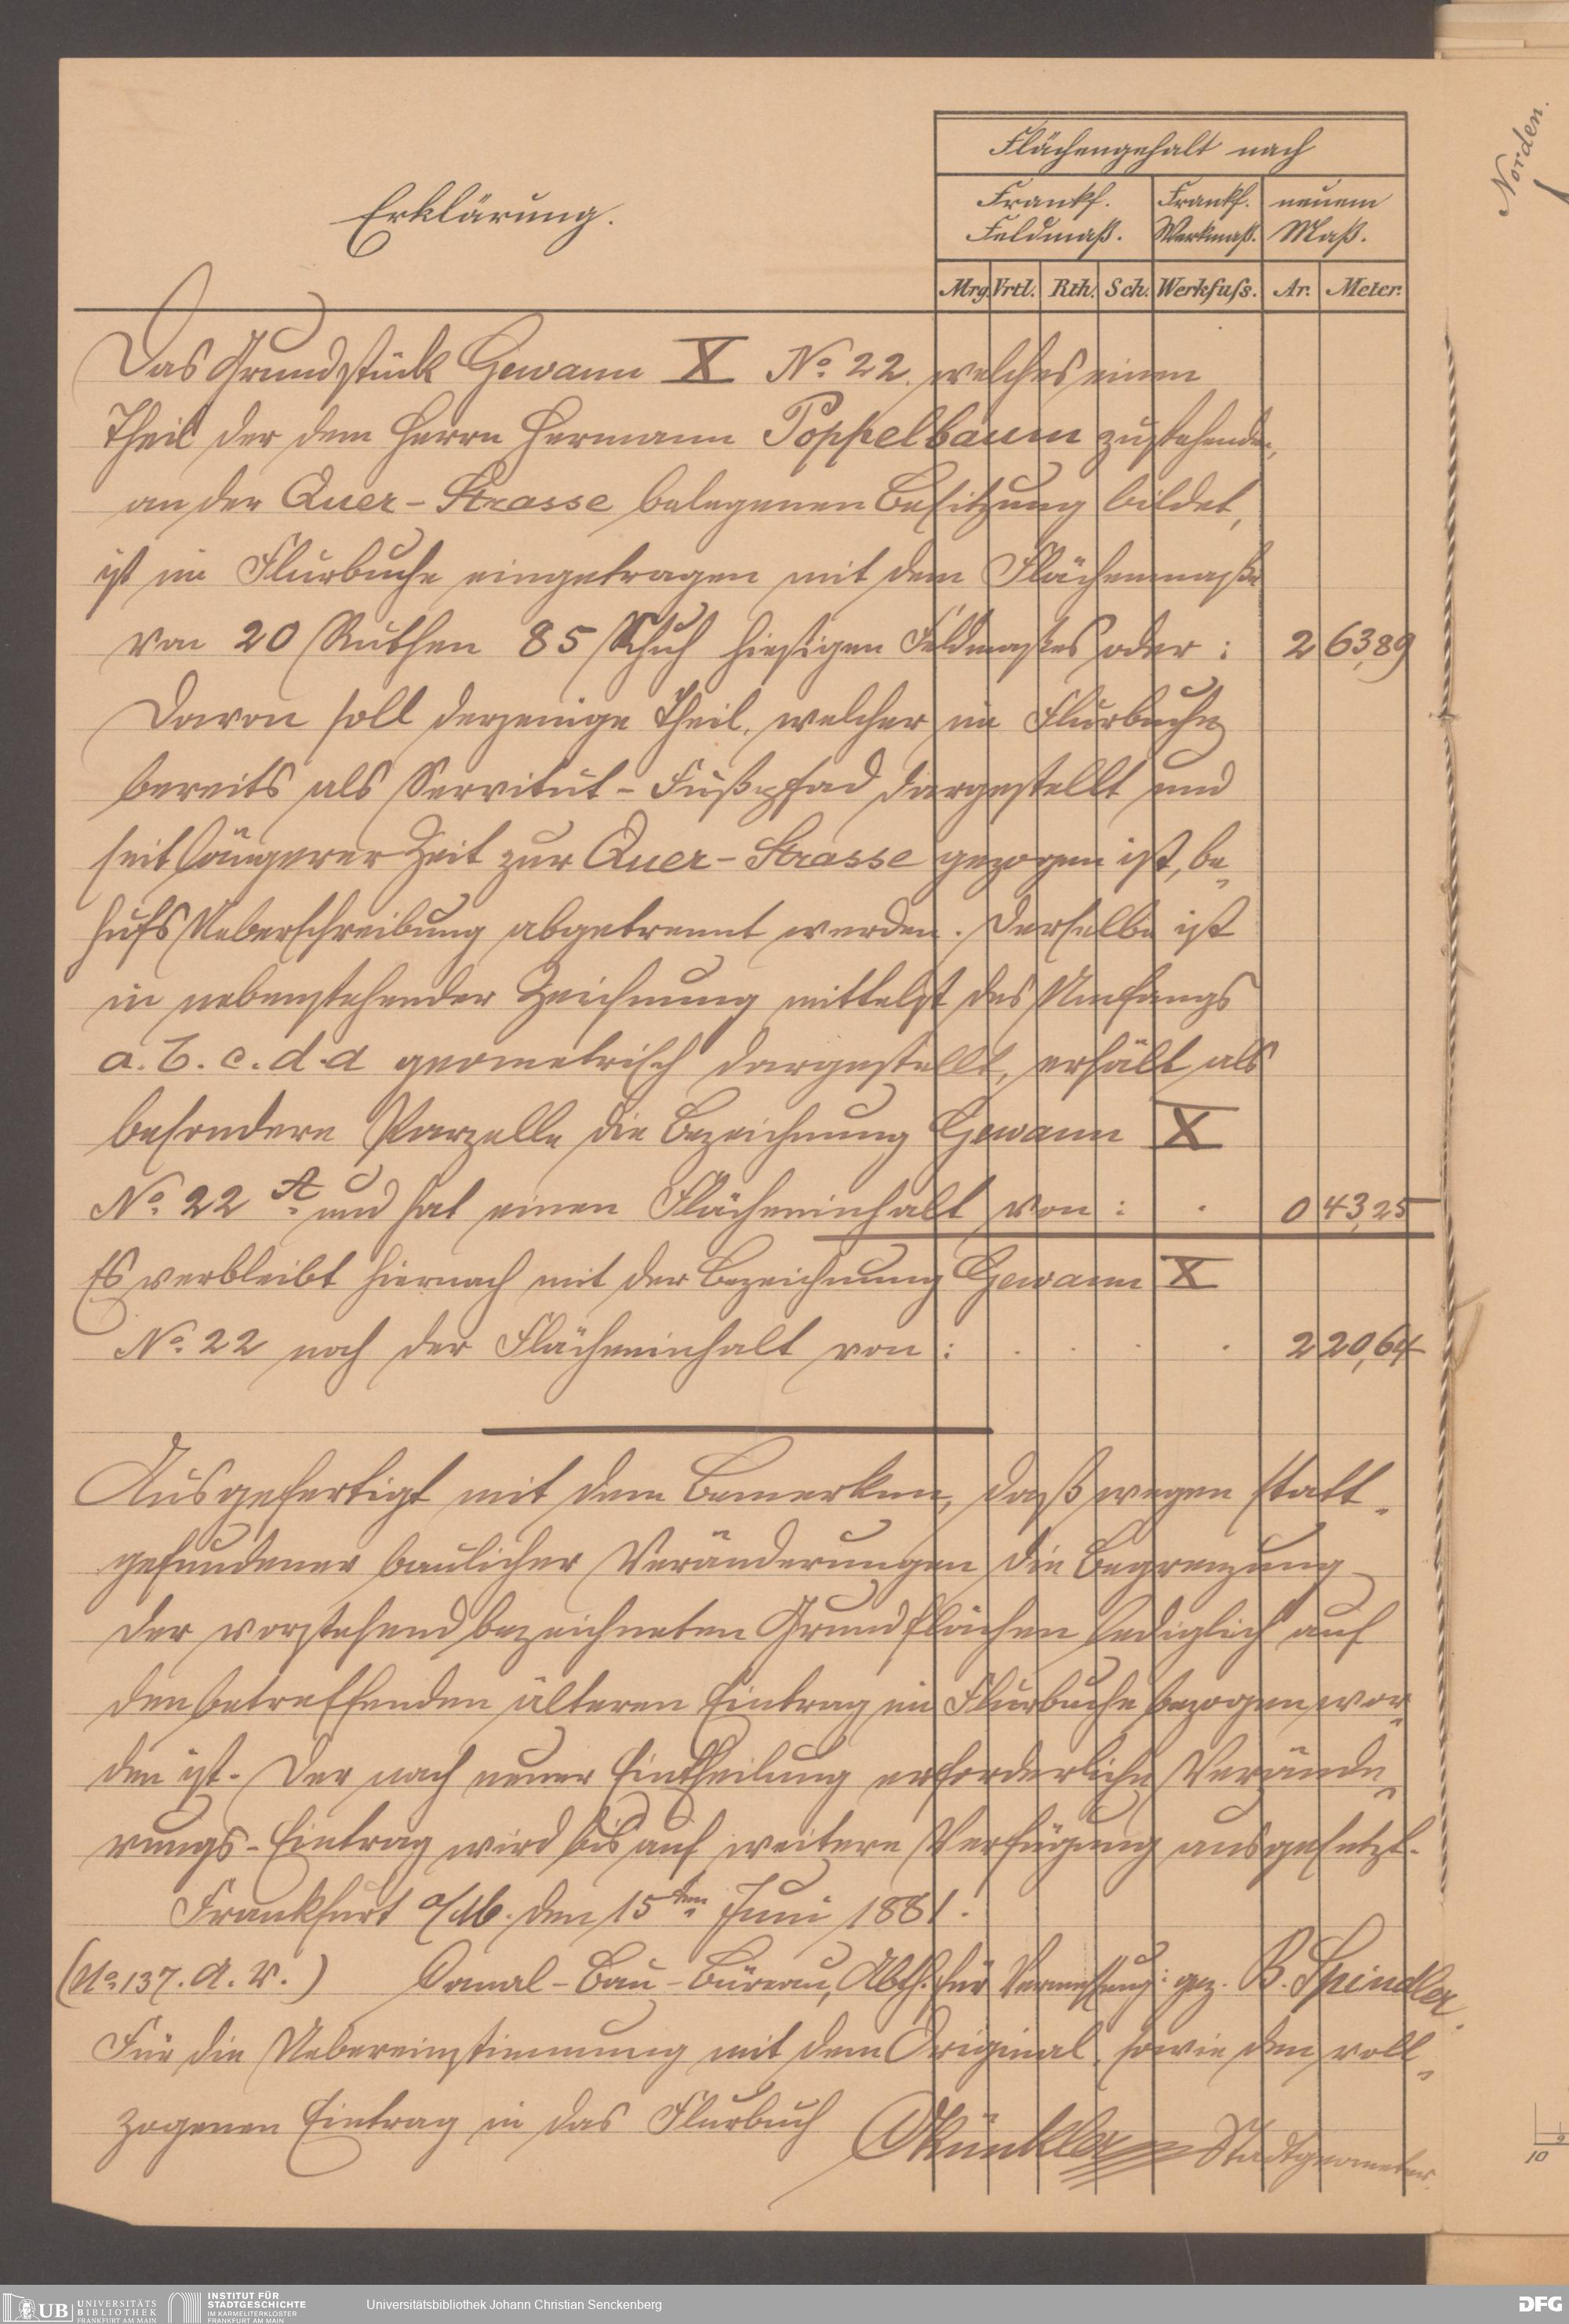 Flächengehalt nach
Erklärung.
Frankf. Feldmaß.
Frankf. Werkmaß.
neuem Maß.
Mrg. Vrtl. Rth. Sch. Werkfuss. Ar. Meter.
Das Grundstück Gewann X No. 22. welches einen
Theil der dem Herrn Hermann Poppelbaum zustehenden,
an der Quer-Strasse belegenen Besitzung bildet,
ist im Flurbuche eingetragen mit dem Flächenmaße
von 20 Ruthen 85 Schuh hiesigen Feldmaßes oder: 2 63,89
Davon soll derjenige Theil, welcher im Flurbuche
bereits als Servitut-Fußpfad dargestellt und
seit längerer Zeit zur Quer-Strasse gezogen ist, be„
hufs Ueberschreibung abgetrennt werden. Derselbe ist
in nebenstehender Zeichnung mittelst des Umfangs
a. b. c. d. a geometrisch dargestellt, erhält als
besondere Parzelle die Bezeichnung Gewann X
No. 22 A. und hat einen Flächeninhalt von: . 0 43,25
Es verbleibt hiernach mit der Bezeichnung Gewann X
No. 22 noch der Flächeninhalt von: . . . . 2 20,64
Ausgefertigt mit dem Bemerken, daß wegen statt„
gefundener baulicher Veränderungen die Begrenzung
der vorstehend bezeichneten Grundflächen lediglich auf
den betreffenden älteren Eintrag im Flurbuche bezogen wor„
den ist. Der nach neuer Eintheilung erforderliche Verände„
rungs-Eintrag wird bis auf weitere Verfügung ausgesetzt.
Frankfurt a/M. den 15ten Juni 1881.
(No. 137. A. V.) Canal-Bau-Büreau, Abth. für Vermessung: gez. B. Spindler.
Für die Uebereinstimmung mit dem Original, sowie den voll„
zogenen Eintrag in das Flurbuch
Stadtgeometer.
Norden.
10
UB UNIVERSITÄTS BIBLIOTHEK FRANKFURT AM MAIN
INSTITUT FÜR STADTGESCHICHTE IM KARMELITERKLOSTER FRANKFURT AM MAIN
Universitätsbibliothek Johann Christian Senckenberg
DFG